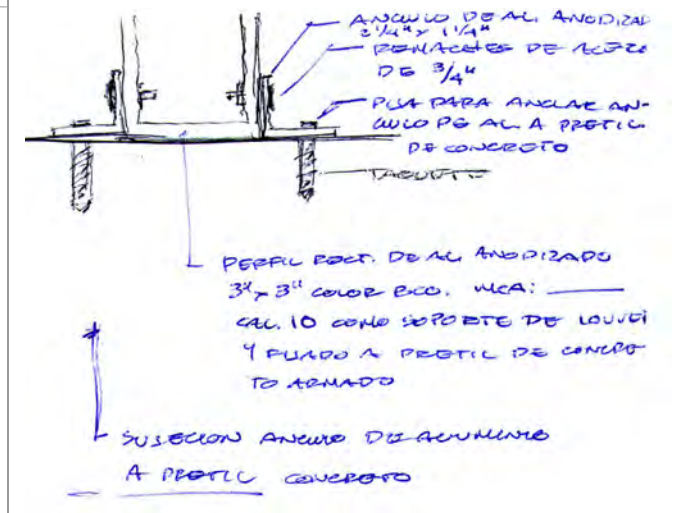 ANGULO DE AL. ANODIZAD
2 1/4" x 1 1/4"
REMACHES DE ACERO
DE 3/4"
PIJA PARA ANCLAR AN-
GULO DE AL. A PRETIL
DE CONCRETO
TAQUETE
PERFIL RECT. DE AL ANODIZADO
3" x 3" COLOR BCO. MCA: ____
CAL. 10 COMO SOPORTE DE LOUVE
Y FIJADO A PRETIL DE CONCRE
TO ARMADO
SUJECION ANGULO DE ALUMINIO
A PRETIL CONCRETO